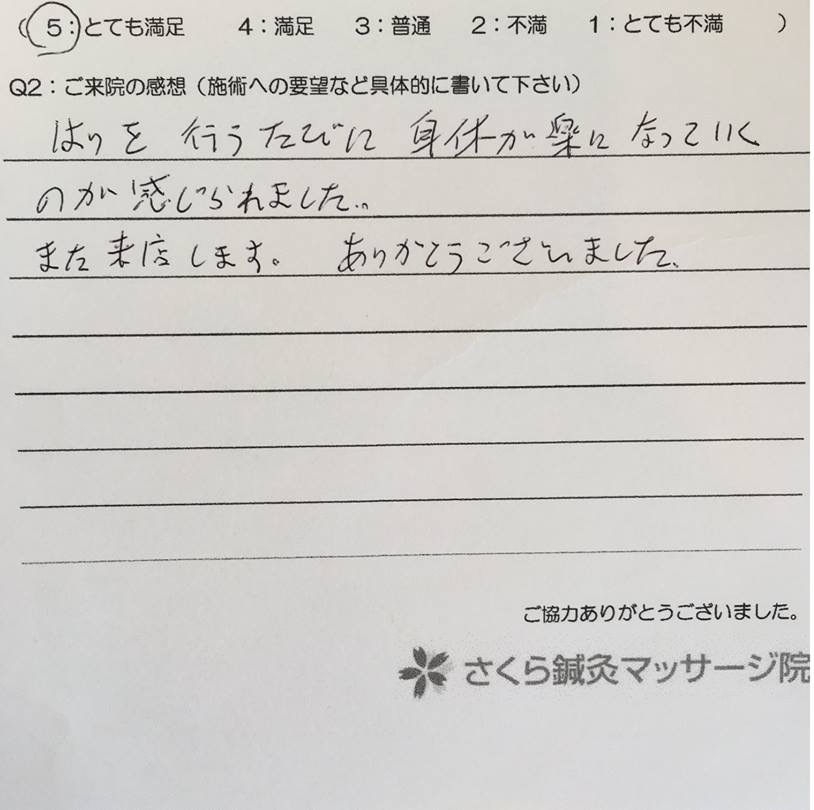 （5：とても満足　4：満足　3：普通　2：不満　1：とても不満　）
Q2：ご来院の感想（施術への要望など具体的に書いて下さい）
はりを 行うたびに 身体が楽に なっていく
のが 感じられました。
また 来店します。 ありがとうございました。
ご協力ありがとうございました。
さくら鍼灸マッサージ院